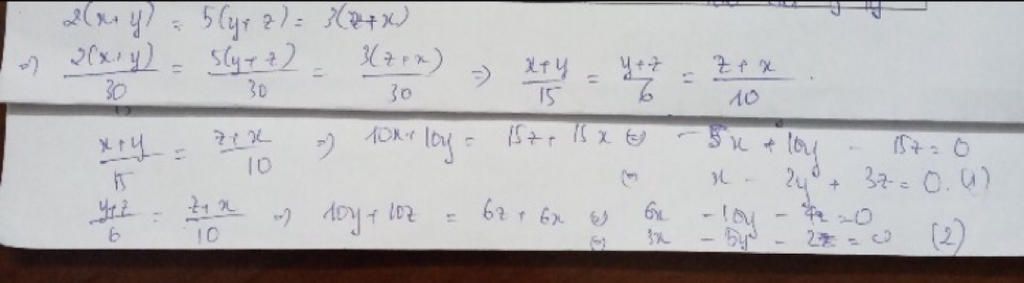 2(x+y) = 5(y+z) = 3(z+x)
=) 2(x+y)/30 = 5(y+z)/30 = 3(z+x)/30 =) x+y/15 = y+z/6 = z+x/10 .
x+y/15 = z+x/10 =) 10x+10y = 15z+15x (=) -5x+10y - 15z=0
(=) x - 2y + 3z=0. (1)
y+z/6 = z+x/10 =) 10y+10z = 6z+6x (=) 6x -10y - 4z=0
(=) 3x - 5y - 2z = 0 (2)